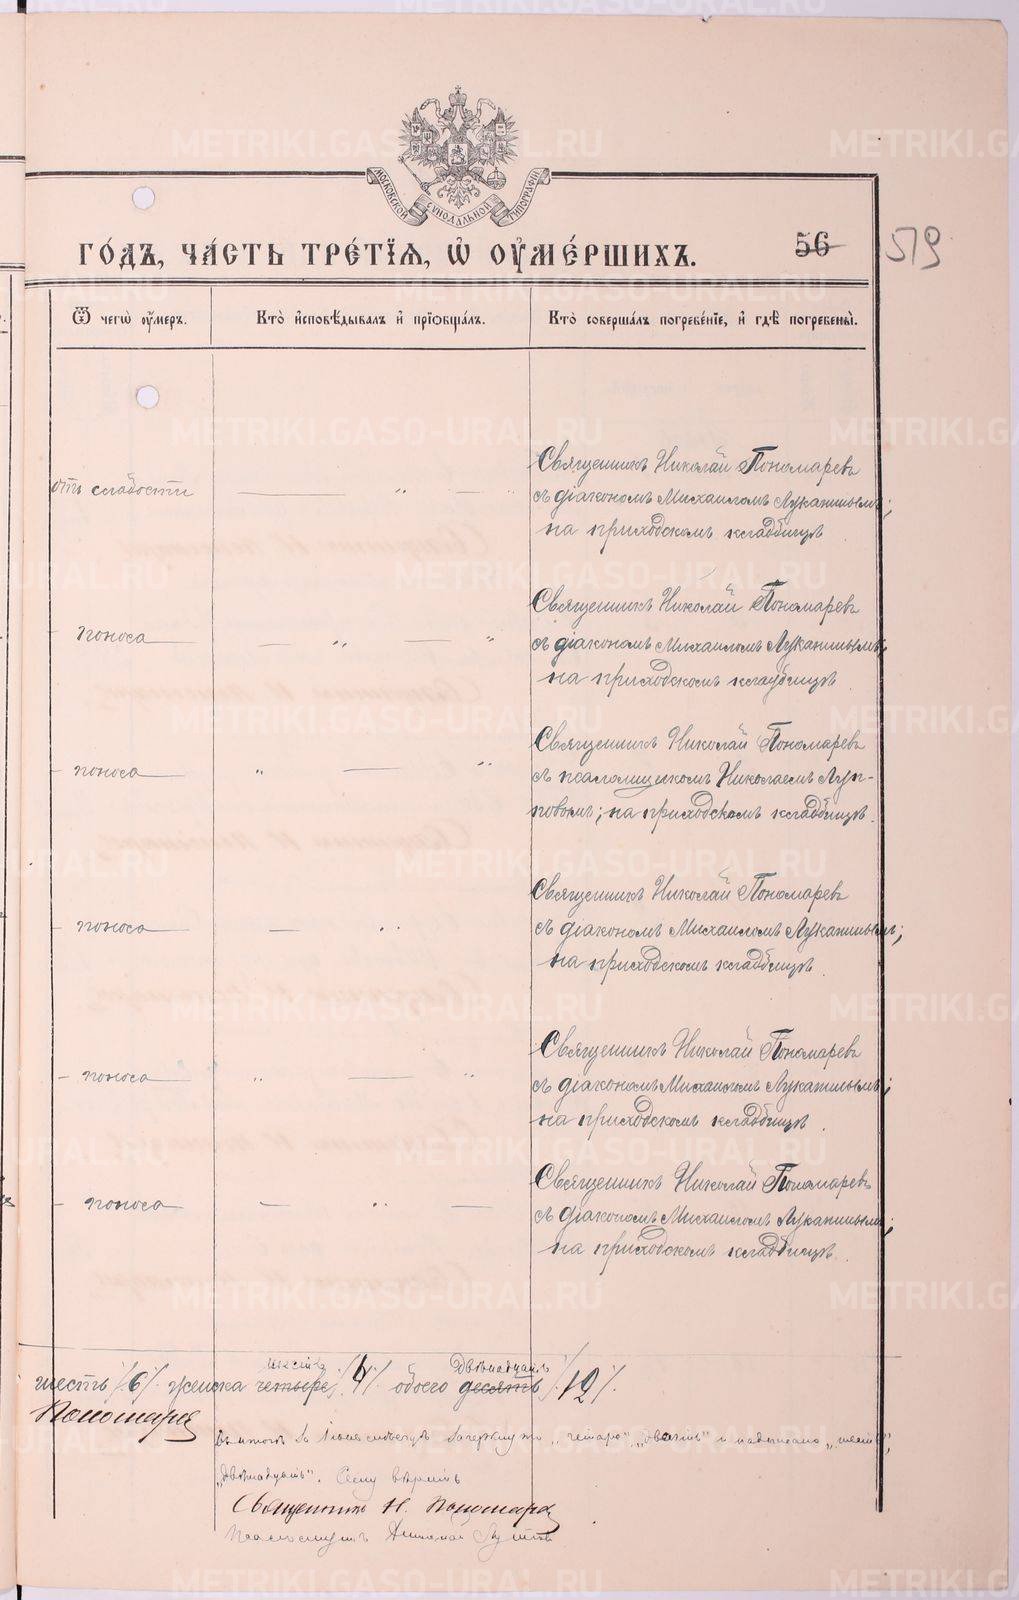 МОСКОВСКОЙ СУНОДАЛЬНОЙ ТИПОГРАФІИ
ГО́ДЪ, ЧА́СТЬ ТРЕ́ТІЯ, Ѡ҆ ОУ҆МЕ́РШИХЪ.
56
519
Ѿ чегѡ̀ оу҆́меръ.
Кто̀ и҆сповѣ́дывалъ и҆ прїѡбща́лъ.
Кто̀ соверша́лъ погребе́нїе, и҆ гдѣ̀ погребены̀.
отъ слабости — „ —
Священникъ Николай Пономаревъ
съ діакономъ Михаиломъ Луканинымъ;
на приходскомъ кладбищѣ
— поноса — „ — „
Священникъ Николай Пономаревъ
съ діакономъ Михаиломъ Луканинымъ;
на приходскомъ кладбищѣ
— поноса — „ — „
Священникъ Николай Пономаревъ
съ псаломщикомъ Николаемъ Луп-
повымъ; на приходскомъ кладбищѣ.
— поноса — „
Священникъ Николай Пономаревъ
съ діакономъ Михаиломъ Луканинымъ;
на приходскомъ кладбищѣ.
— поноса — „ — „
Священникъ Николай Пономаревъ
съ діакономъ Михаиломъ Луканинымъ;
на приходскомъ кладбищѣ.
— поноса — „ —
Священникъ Николай Пономаревъ
съ діакономъ Михаиломъ Луканинымъ;
на приходскомъ кладбищѣ.
шесть двѣнадцать
шесть /6/ женска четыре /6/ обоего десять /12/
Пономарев
зачеркнуто „четыре", и надписано „шесть",
„двѣнадцать". Сему вѣрить
Священникъ Н. Пономарев
Псаломщикъ
METRIKI.GASO-URAL.RU